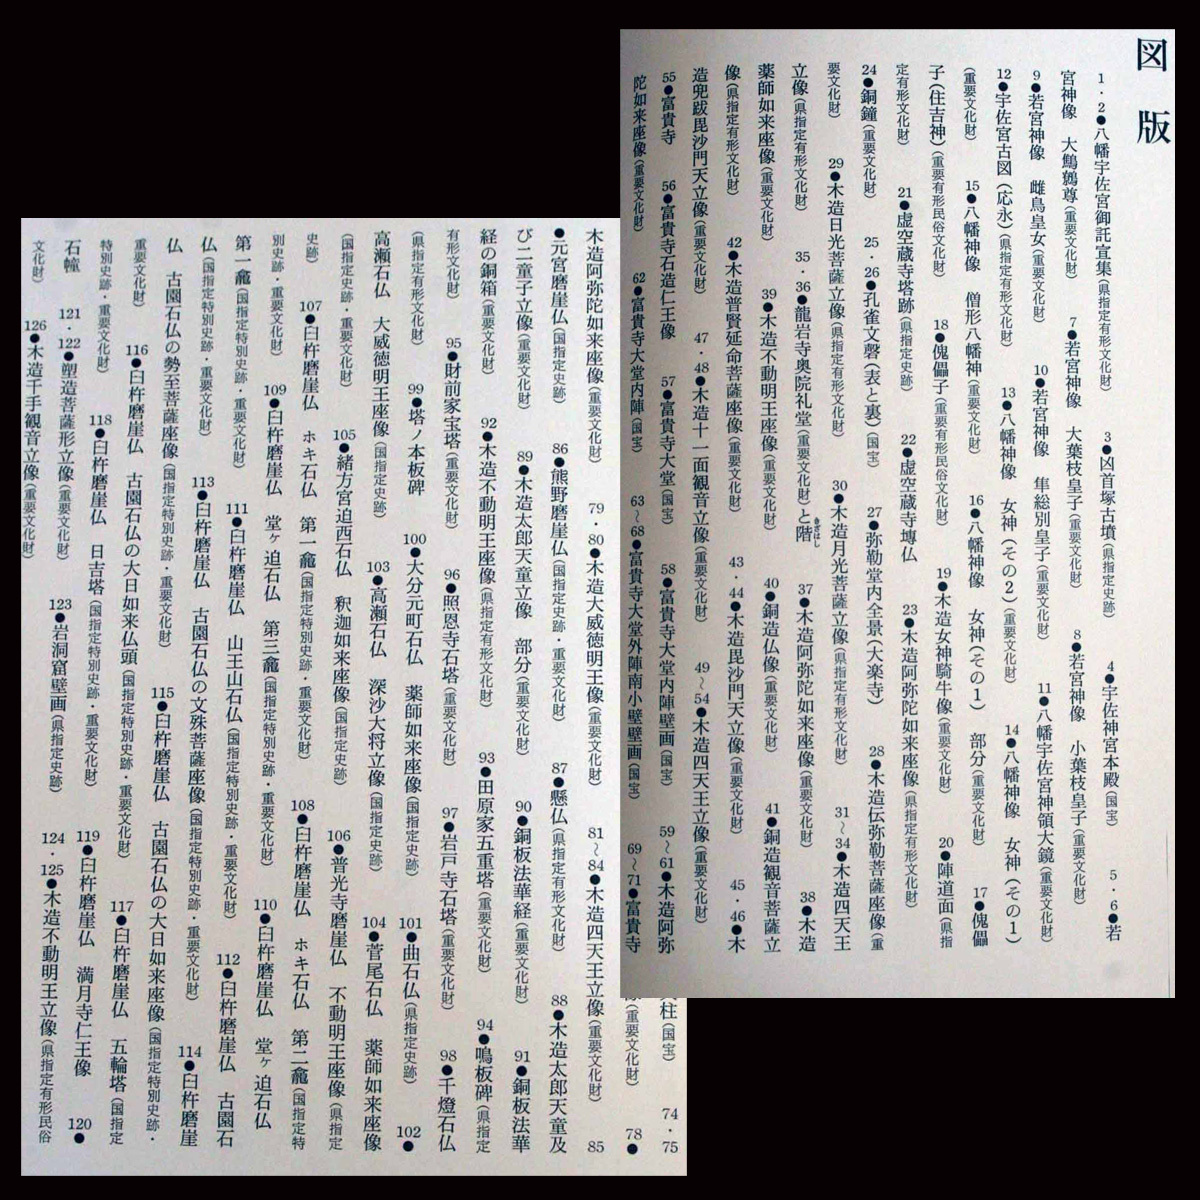 図版
1・2●八幡宇佐宮御託宣集(県指定有形文化財)　3●凶首塚古墳(県指定史跡)　4●宇佐神宮本殿(国宝)　5・6●若
宮神像　大鷦鷯尊(重要文化財)　7●若宮神像　大葉枝皇子(重要文化財)　8●若宮神像　小葉枝皇子(重要文化財)
9●若宮神像　雌鳥皇女(重要文化財)　10●若宮神像　隼総別皇子(重要文化財)　11●八幡宇佐宮神領大鏡(重要文化財)
12●宇佐宮古図(応永)(県指定有形文化財)　13●八幡神像　女神(その2)(重要文化財)　14●八幡神像　女神(その1)
(重要文化財)　15●八幡神像　僧形八幡神(重要文化財)　16●八幡神像　女神(その1)　部分(重要文化財)　17●傀儡
子(住吉神)(重要有形民俗文化財)　18●傀儡子(重要有形民俗文化財)　19●木造女神騎牛像(重要文化財)　20●陣道面(県指
定有形文化財)　21●虚空蔵寺塔跡(県指定史跡)　22●虚空蔵寺塼仏　23●木造阿弥陀如来座像(県指定有形文化財)
24●銅鐘(重要文化財)　25・26●孔雀文磬(表と裏)(国宝)　27●弥勒堂内全景(大楽寺)　28●木造伝弥勒菩薩座像(重
要文化財)　29●木造日光菩薩立像(県指定有形文化財)　30●木造月光菩薩立像(県指定有形文化財)　31〜34●木造四天王
立像(県指定有形文化財)　35・36●龍岩寺奥院礼堂(重要文化財)と階きざはし　37●木造阿弥陀如来座像(重要文化財)　38●木造
薬師如来座像(重要文化財)　39●木造不動明王座像(重要文化財)　40●銅造仏像(重要文化財)　41●銅造観音菩薩立
像(県指定有形文化財)　42●木造普賢延命菩薩座像(重要文化財)　43・44●木造毘沙門天立像(重要文化財)　45・46●木
造兜跋毘沙門天立像(重要文化財)　47・48●木造十一面観音立像(重要文化財)　49〜54●木造四天王立像(重要文化財)
55●富貴寺　56●富貴寺石造仁王像　57●富貴寺大堂(国宝)　58●富貴寺大堂内陣壁画(国宝)　59〜61●木造阿弥
陀如来座像(重要文化財)　62●富貴寺大堂内陣(国宝)　63〜68●富貴寺大堂外陣南小壁壁画(国宝)　69〜71●富貴寺
柱(国宝)　74・75
像(重要文化財)　78●
木造阿弥陀如来座像(重要文化財)　79・80●木造大威徳明王像(重要文化財)　81〜84●木造四天王立像(重要文化財)　85
●元宮磨崖仏(国指定史跡)　86●熊野磨崖仏(国指定史跡・重要文化財)　87●懸仏(県指定有形文化財)　88●木造太郎天童及
び二童子立像(重要文化財)　89●木造太郎天童立像　部分(重要文化財)　90●銅板法華経(重要文化財)　91●銅板法華
経の銅箱(重要文化財)　92●木造不動明王座像(県指定有形文化財)　93●田原家五重塔(重要文化財)　94●鳴板碑(県指定
有形文化財)　95●財前家宝塔(重要文化財)　96●照恩寺石塔(重要文化財)　97●岩戸寺石塔(重要文化財)　98●千燈石仏
(県指定有形文化財)　99●塔ノ本板碑　100●大分元町石仏　薬師如来座像(国指定史跡)　101●曲石仏(県指定史跡)　102●
高瀬石仏　大威徳明王座像(国指定史跡)　103●高瀬石仏　深沙大将立像(国指定史跡)　104●菅尾石仏　薬師如来座像
(国指定史跡・重要文化財)　105●緒方宮迫西石仏　釈迦如来座像(国指定史跡)　106●普光寺磨崖仏　不動明王座像(県指定
史跡)　107●臼杵磨崖仏　ホキ石仏　第一龕(国指定特別史跡・重要文化財)　108●臼杵磨崖仏　ホキ石仏　第二龕(国指定特
別史跡・重要文化財)　109●臼杵磨崖仏　堂ヶ迫石仏　第三龕(国指定特別史跡・重要文化財)　110●臼杵磨崖仏　堂ヶ迫石仏
第一龕(国指定特別史跡・重要文化財)　111●臼杵磨崖仏　山王山石仏(国指定特別史跡・重要文化財)　112●臼杵磨崖仏　古園石
仏(国指定特別史跡・重要文化財)　113●臼杵磨崖仏　古園石仏の文殊菩薩座像(国指定特別史跡・重要文化財)　114●臼杵磨崖
仏　古園石仏の勢至菩薩座像(国指定特別史跡・重要文化財)　115●臼杵磨崖仏　古園石仏の大日如来座像(国指定特別史跡・
重要文化財)　116●臼杵磨崖仏　古園石仏の大日如来仏頭(国指定特別史跡・重要文化財)　117●臼杵磨崖仏　五輪塔(国指定
特別史跡・重要文化財)　118●臼杵磨崖仏　日吉塔(国指定特別史跡・重要文化財)　119●臼杵磨崖仏　満月寺仁王像　120●
石幢　121・122●塑造菩薩形立像(重要文化財)　123●岩洞窟壁画(県指定史跡)　124・125●木造不動明王立像(県指定有形民俗
文化財)　126●木造千手観音立像(重要文化財)